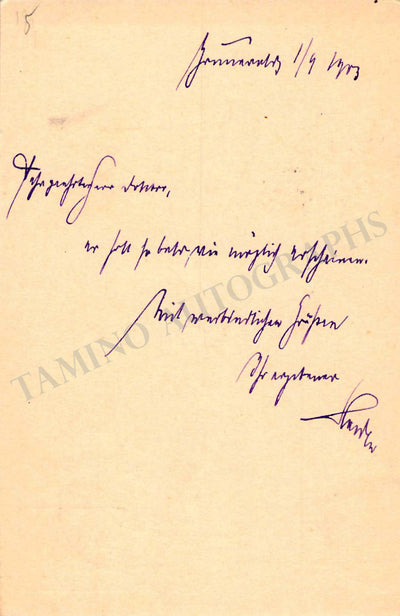 15
Grunewald 1/9 1903
Sehr geehrter Herr Doktor,
er soll so bald wie möglich erscheinen.
Mit verbindlichen Grüßen
Ihr ergebener
TAMINO AUTOGRAPHS